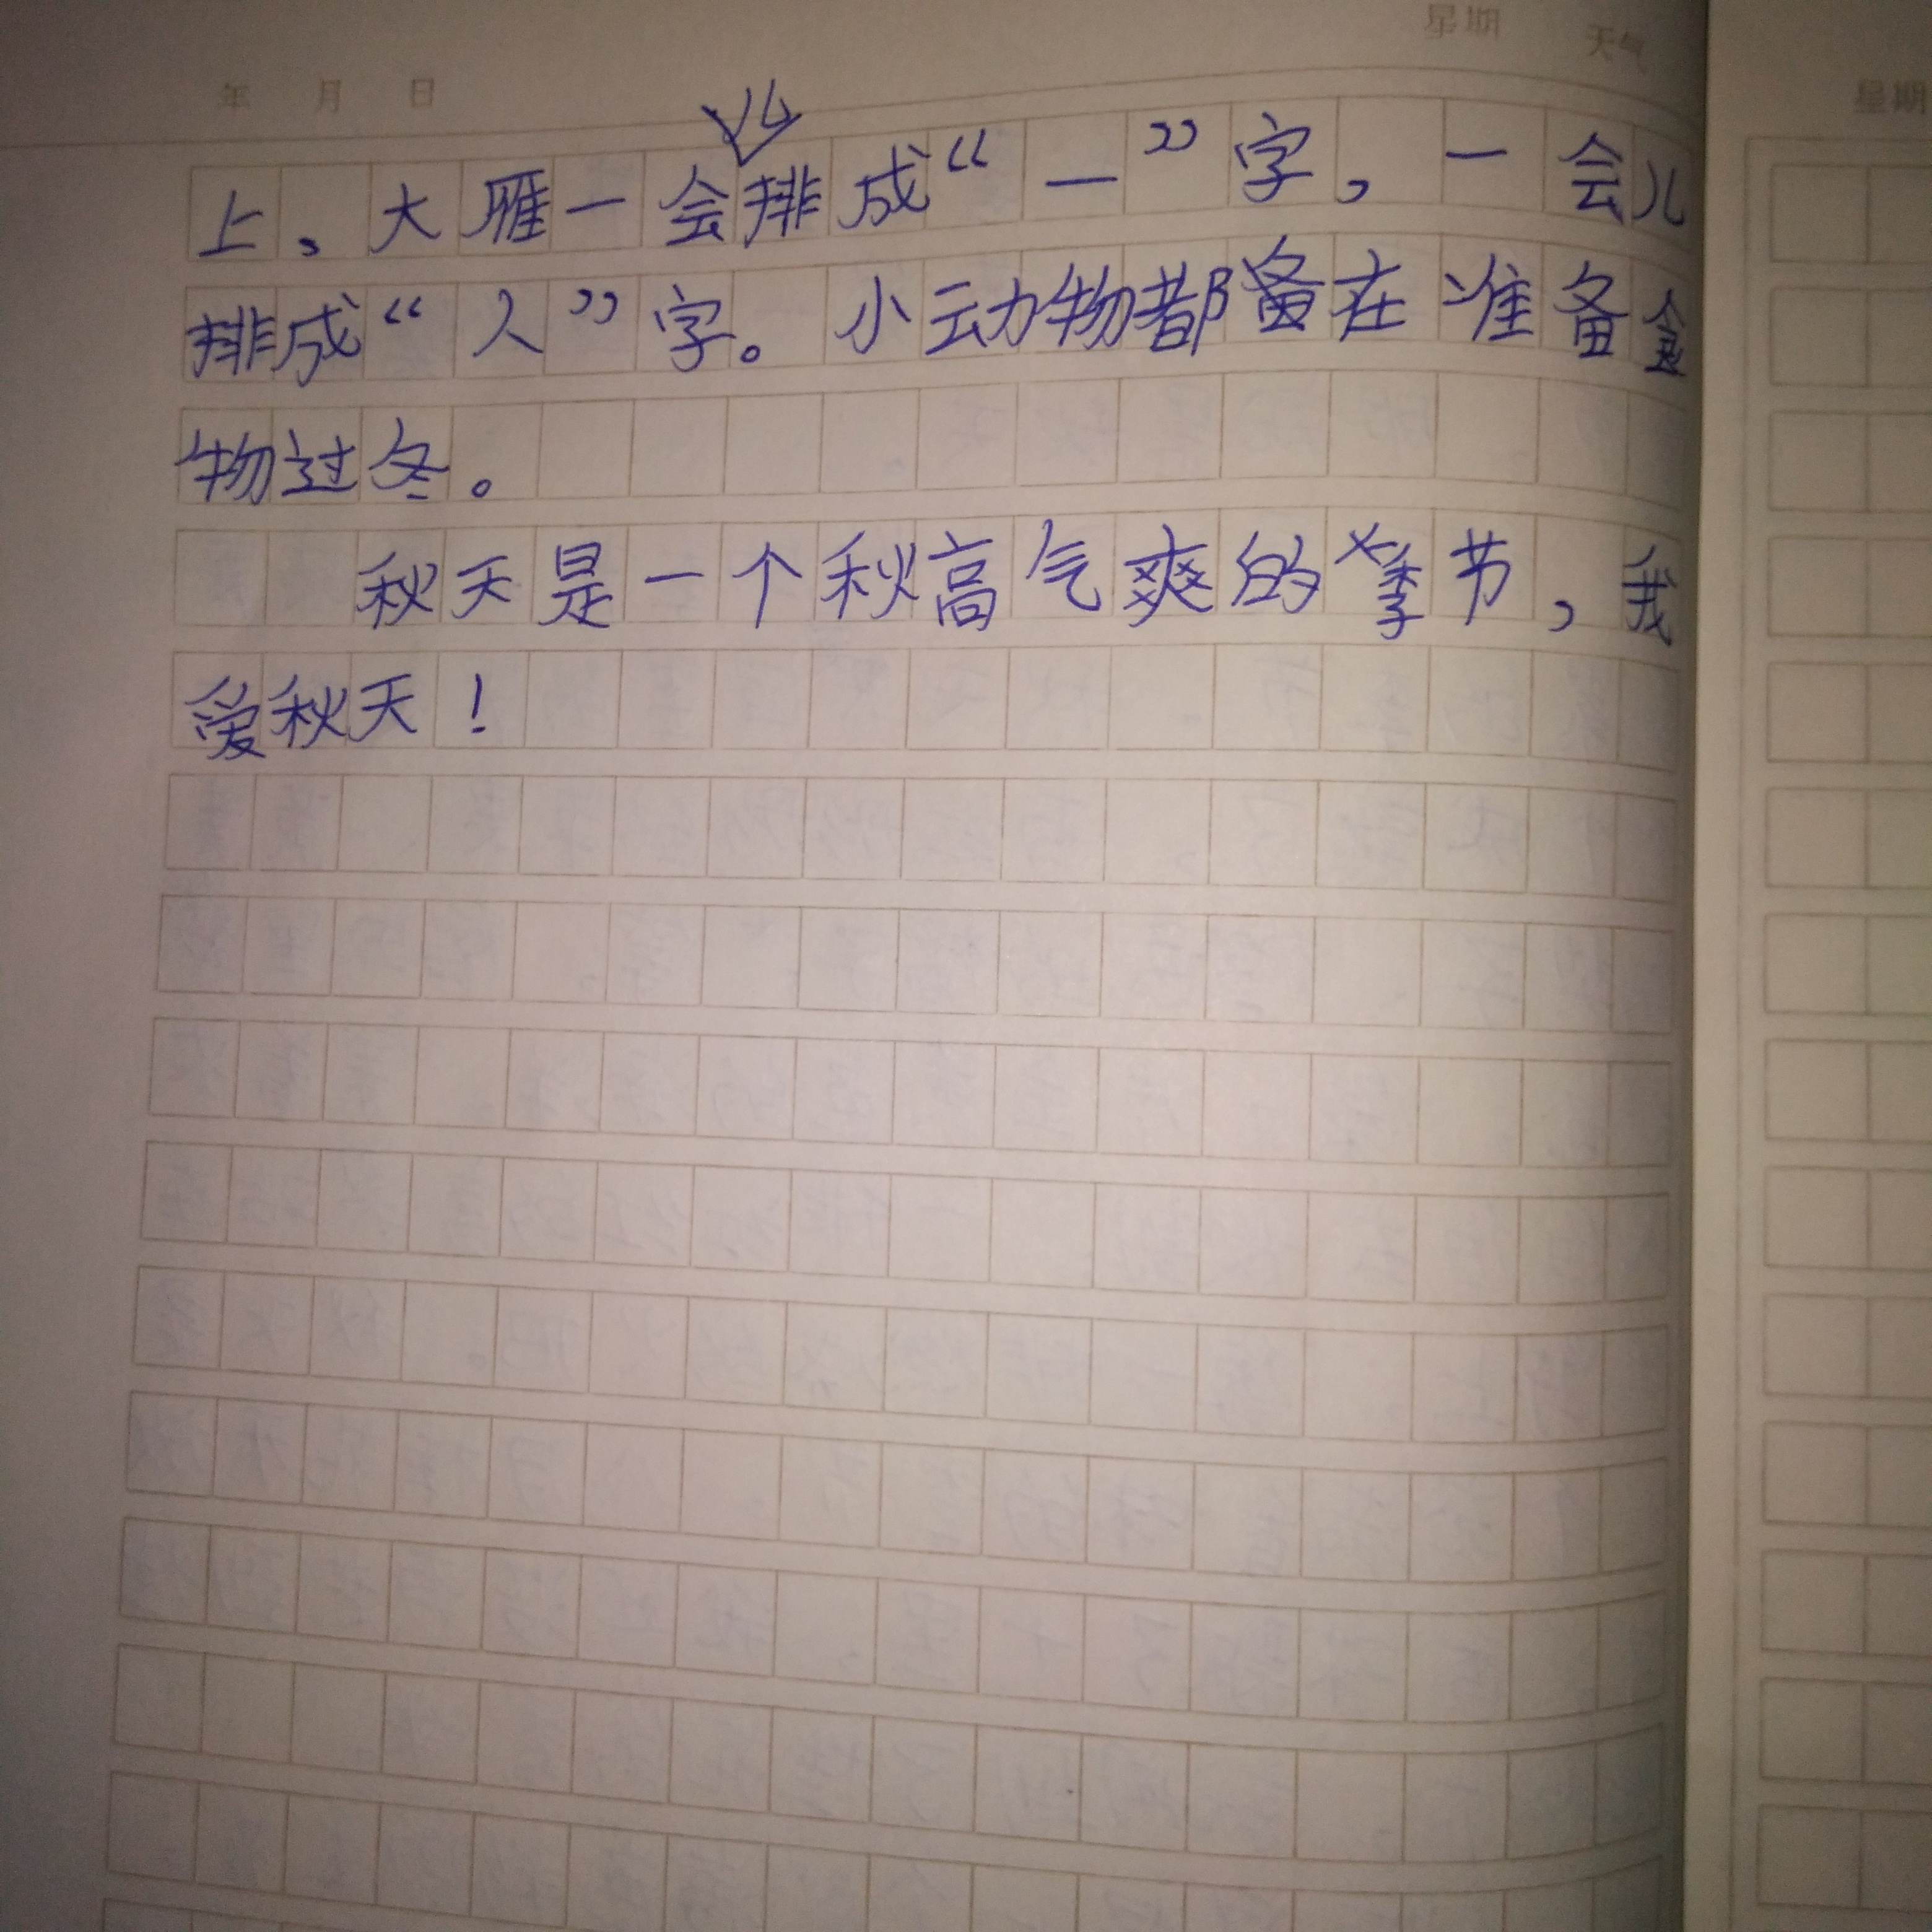 星期 天气
年 月 日
星期
上，大雁一会儿排成“一”字，一会儿
排成“人”字。小动物都备在准备食
物过冬。
秋天是一个秋高气爽的季节，我
爱秋天！